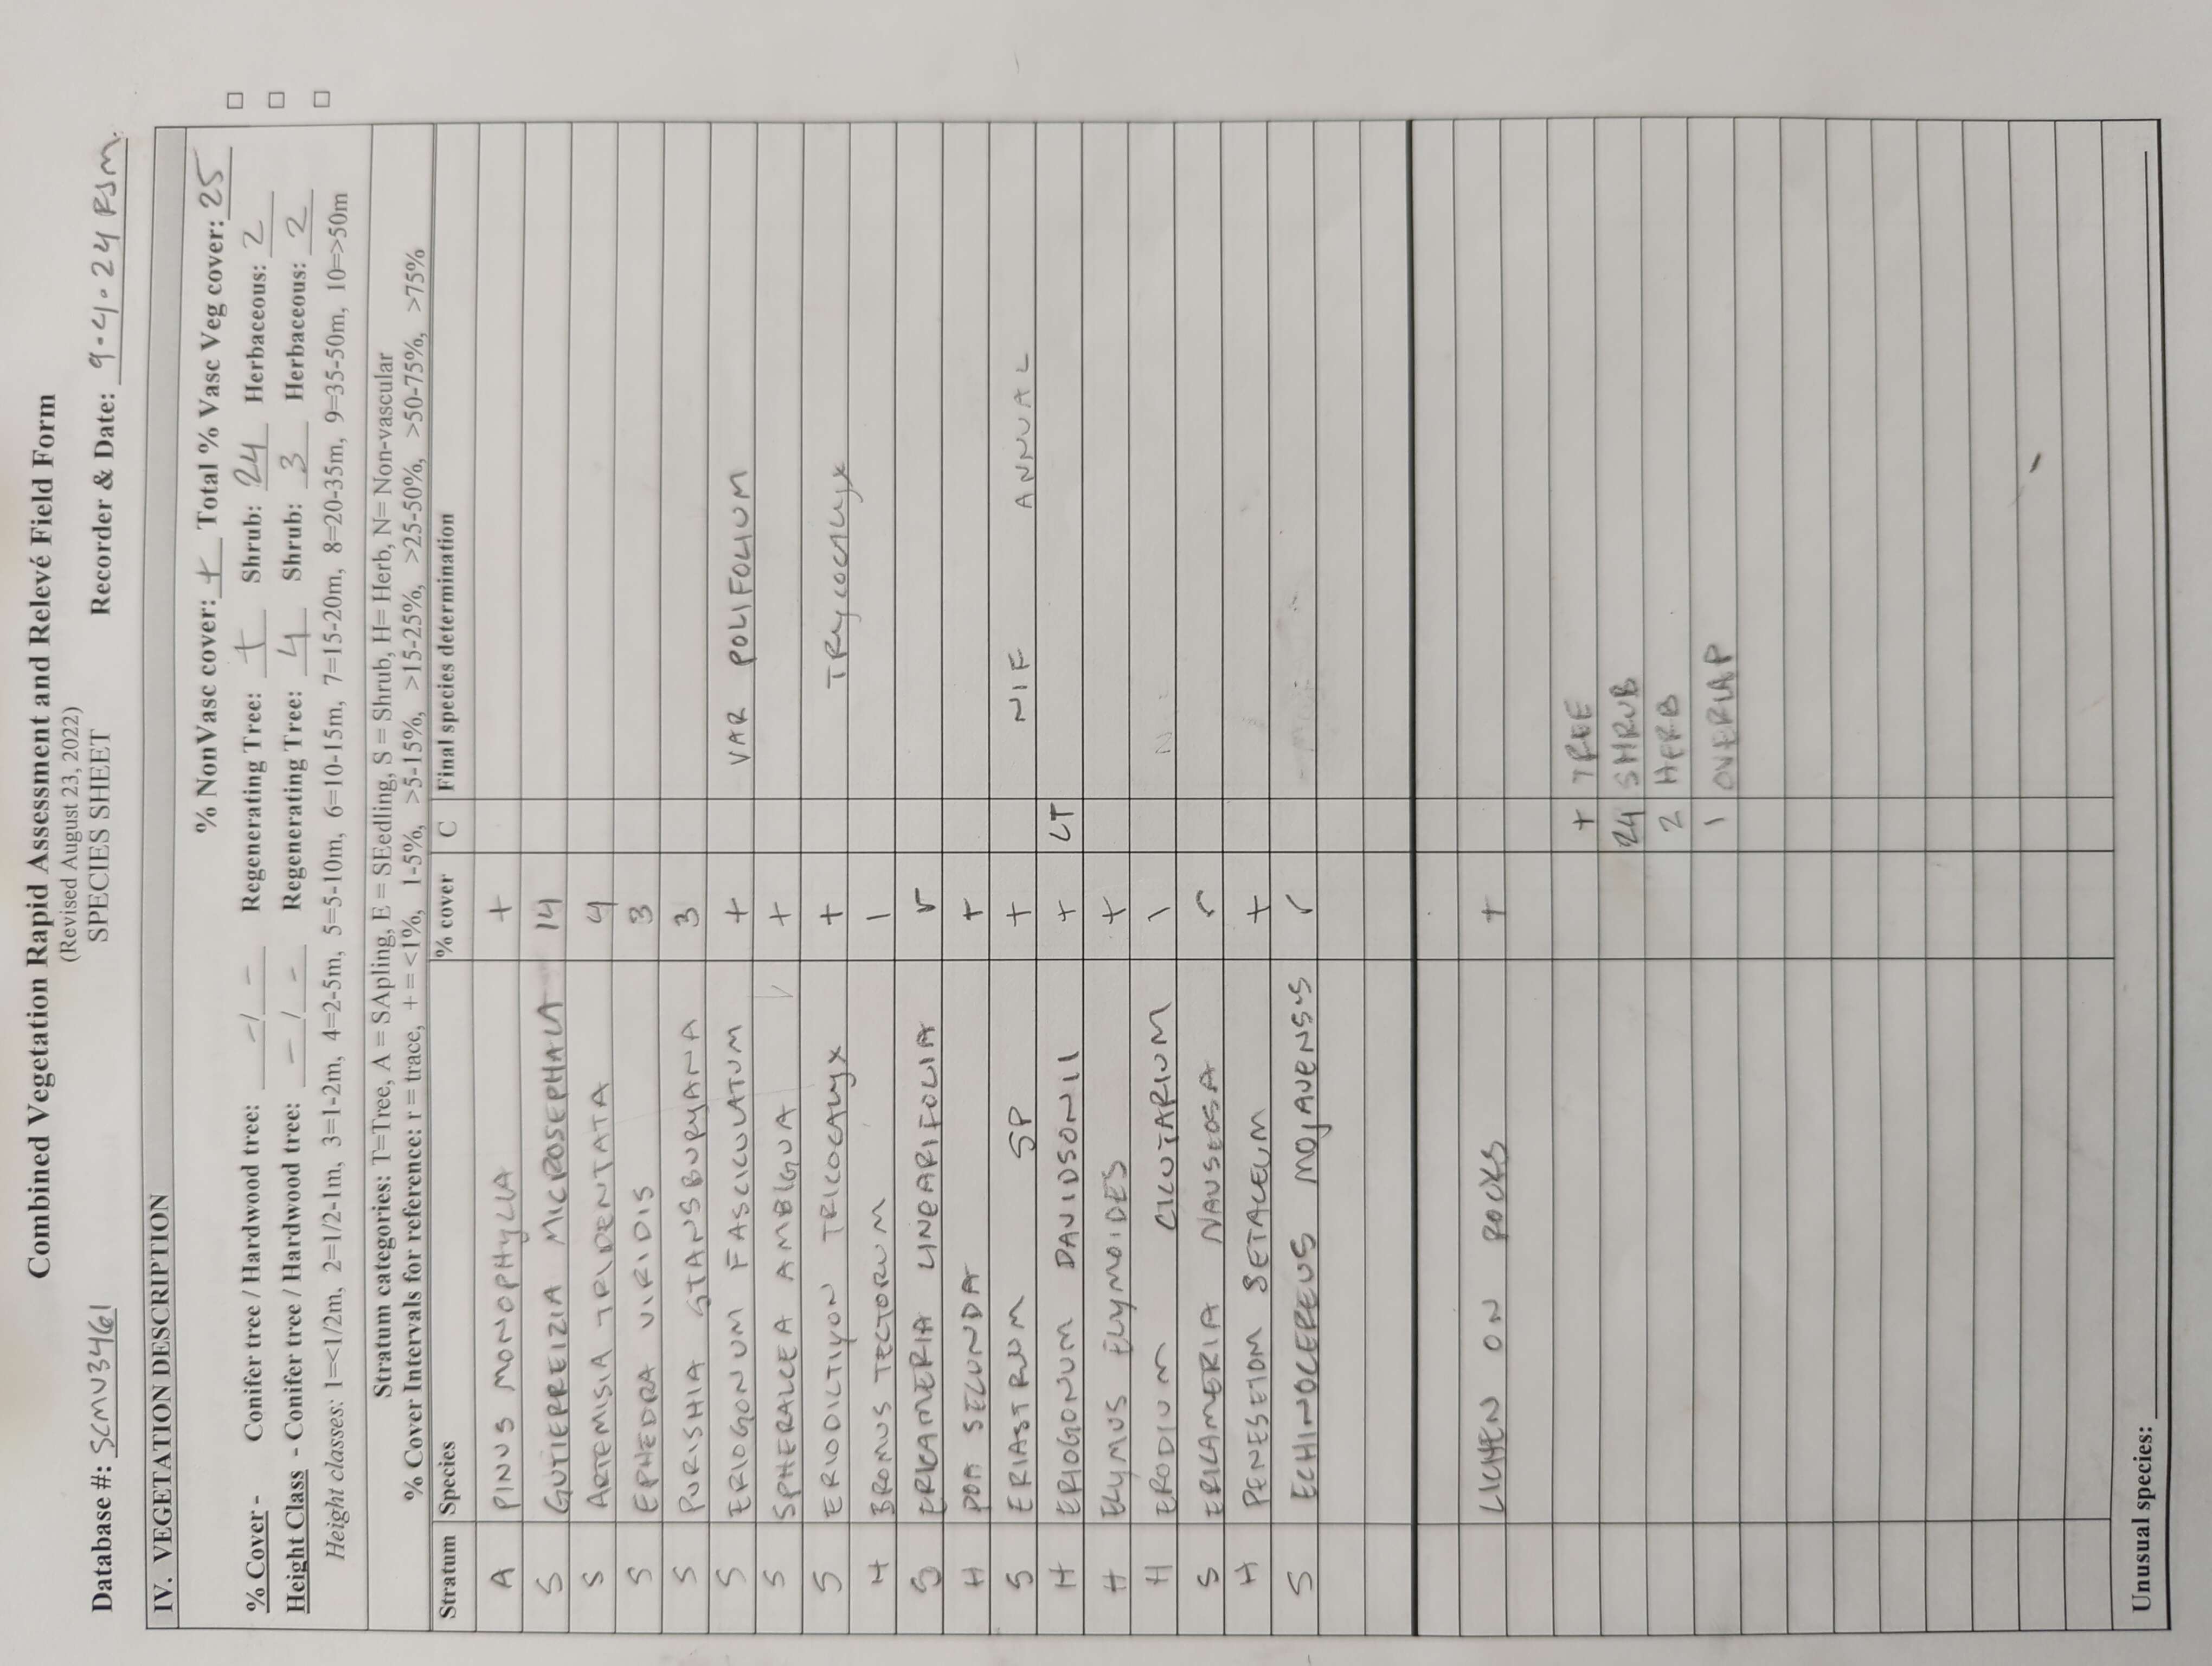 Combined Vegetation Rapid Assessment and Relevé Field Form
(Revised August 23, 2022)
SPECIES SHEET
Database #: SCMV03461 Recorder & Date: 9.4.24 RSM
IV. VEGETATION DESCRIPTION
% NonVasc cover: + Total % Vasc Veg cover: 25
% Cover - Conifer tree / Hardwood tree: - / - Regenerating Tree: + Shrub: 24 Herbaceous: 2 □
Height Class - Conifer tree / Hardwood tree: - / - Regenerating Tree: 4 Shrub: 3 Herbaceous: 2 □
Height classes: 1=<1/2m, 2=1/2-1m, 3=1-2m, 4=2-5m, 5=5-10m, 6=10-15m, 7=15-20m, 8=20-35m, 9=35-50m, 10=>50m □
Stratum categories: T=Tree, A = SApling, E = SEedling, S = Shrub, H= Herb, N= Non-vascular
% Cover Intervals for reference: r = trace, + = <1%, 1-5%, >5-15%, >15-25%, >25-50%, >50-75%, >75%
Stratum Species % cover C Final species determination
A PINUS MONOPHYLLA +
S GUTIERREIZIA MICROSEPHALA 14
S ARTEMISIA TRIDENTATA 4
S EPHEDRA VIRIDIS 3
S PURISHIA STANSBURYANA 3
S ERIOGONUM FASCICULATUM + VAR POLIFOLIUM
S SPHERALCEA AMBIGUA +
S ERIODICTIYON TRICOCALYX + TRYCOCALYX
H BROMUS TECTORUM 1
S ERICAMERIA LINEARIFOLIA r
H POA SECUNDA +
S ERIASTRUM SP + NIF ANNUAL
H ERIOGONUM DAVIDSONII + CT
H ELYMUS ELYMOIDES +
H ERODIUM CICUTARIUM 1
S ERICAMERIA NAUSEOSA r
H PENESETUM SETACEUM +
S ECHINOCEREUS MOJAVENSIS r
LICHEN ON ROCKS +
+ TREE
24 SHRUB
2 HERB
1 OVERLAP
Unusual species: